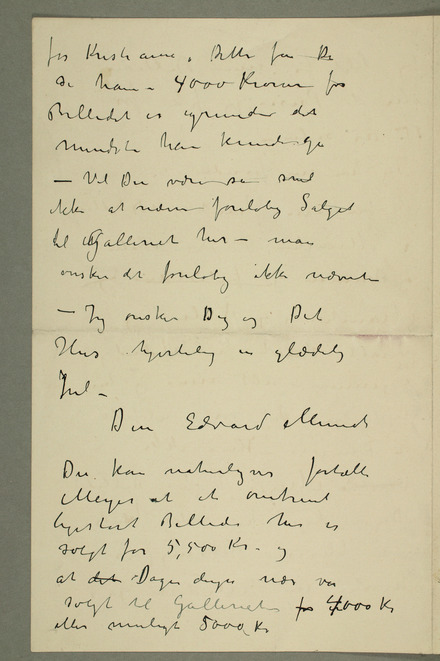 for Kristiania. Dette for De
se ham – 4000 Kroner for
Billedet er igrunden det
mindste han kunde gi
– Vil Du være så snil
ikke at nævne foreløbig Salget
til Galleriet her – man
ønsker det foreløbig ikke nævnt
– Jeg ønsker Dig og Dit
Hus hjertelig en glædelig
Jul –
Din Edvard Munch
Du kan naturligvis fortælle
Meyer at et omtrent
ligestort Billede her er
solgt for 5,500 Kr. og
at Dagen derpå var
solgt til Galleriet for 4000 Kr
eller muligt 5000 Kr